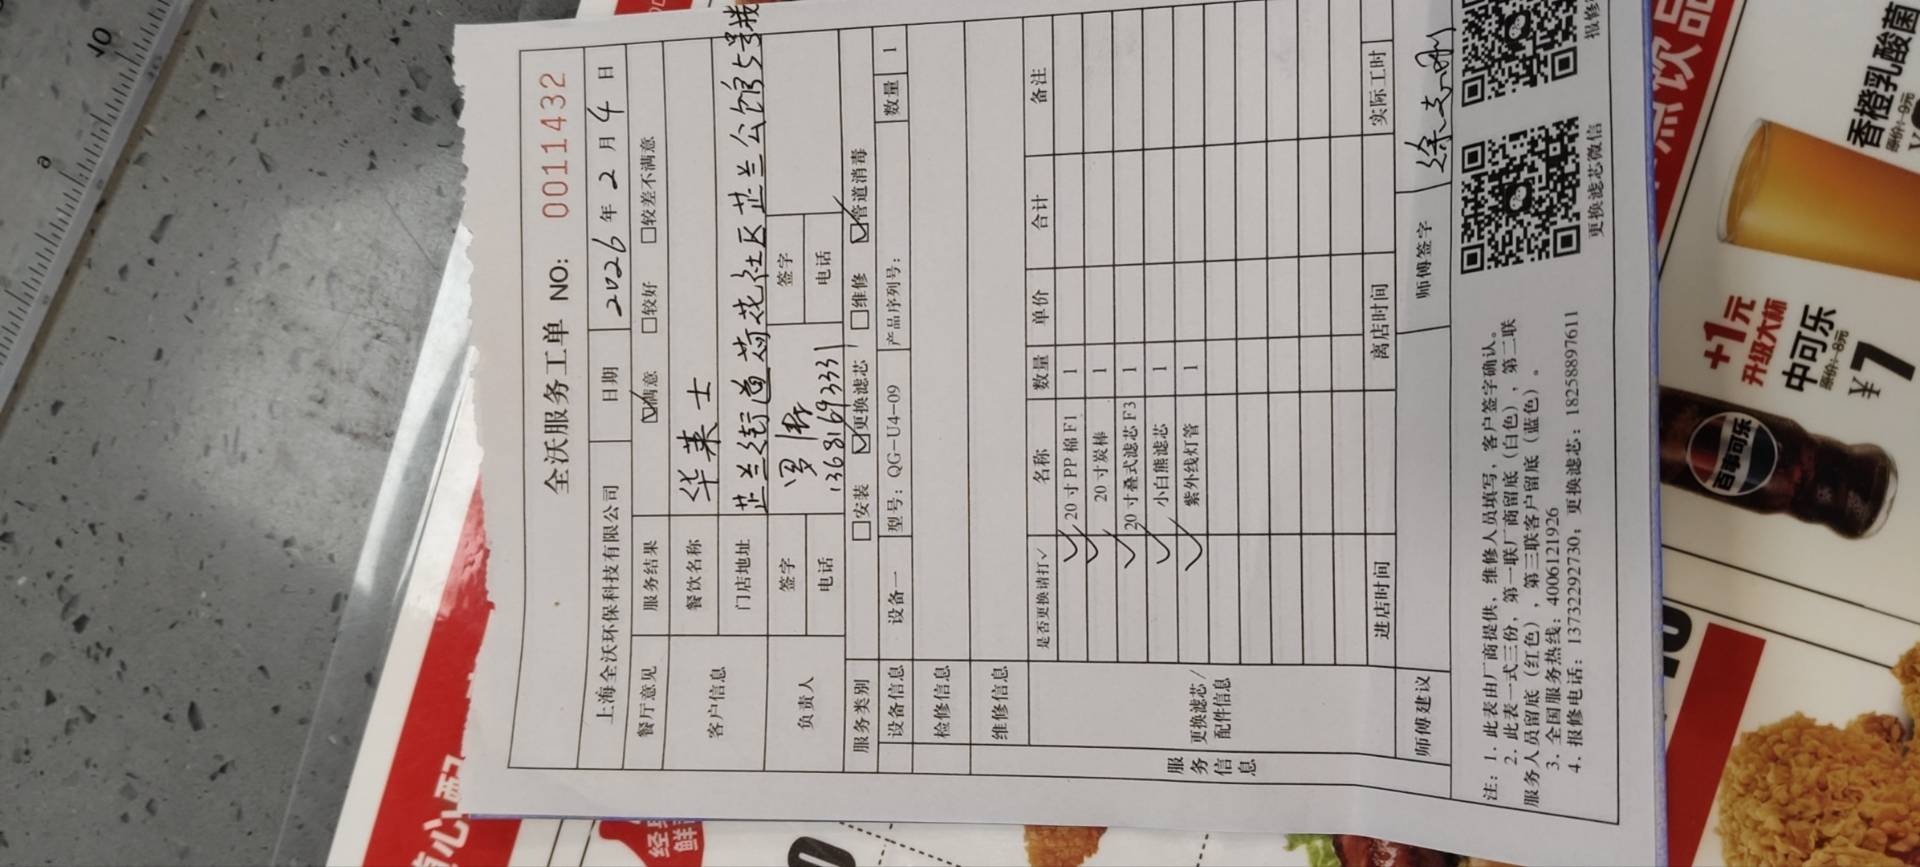 全沃服务工单 NO: 0011432
上海全沃环保科技有限公司 日期 2026年2月4日
餐厅意见 服务结果 ☑满意 □较好 □较差不满意
客户信息 餐饮名称 华莱士
门店地址 芷兰街道荷花社区芷兰公馆5号楼
负责人 签字 罗 签字
电话 13681693331 电话
服务类别 □安装 ☑更换滤芯 □维修 ☑管道消毒
设备信息 设备一 型号: QG-U4-09 产品序列号: 数量 1
检修信息
维修信息
服务信息
更换滤芯/配件信息
是否更换请打✓ 名称 数量 单价 合计 备注
✓ 20寸PP棉F1 1
✓ 20寸炭棒 1
✓ 20寸叠式滤芯F3 1
✓ 小白熊滤芯 1
✓ 紫外线灯管 1
进店时间 离店时间 实际工时
师傅建议 师傅签字 徐志刚
注: 1. 此表由厂商提供、维修人员填写, 客户签字确认。
2. 此表一式三份, 第一联厂商留底(白色), 第二联
服务人员留底(红色), 第三联客户留底(蓝色)。
3. 全国服务热线: 4006121926
4. 报修电话: 13732292730, 更换滤芯: 18258897611
更换滤芯微信
报修
点饮品
香橙乳酸菌
原价:9元
+1元
升级大杯
中可乐
原价:8元
¥7
百事可乐
10